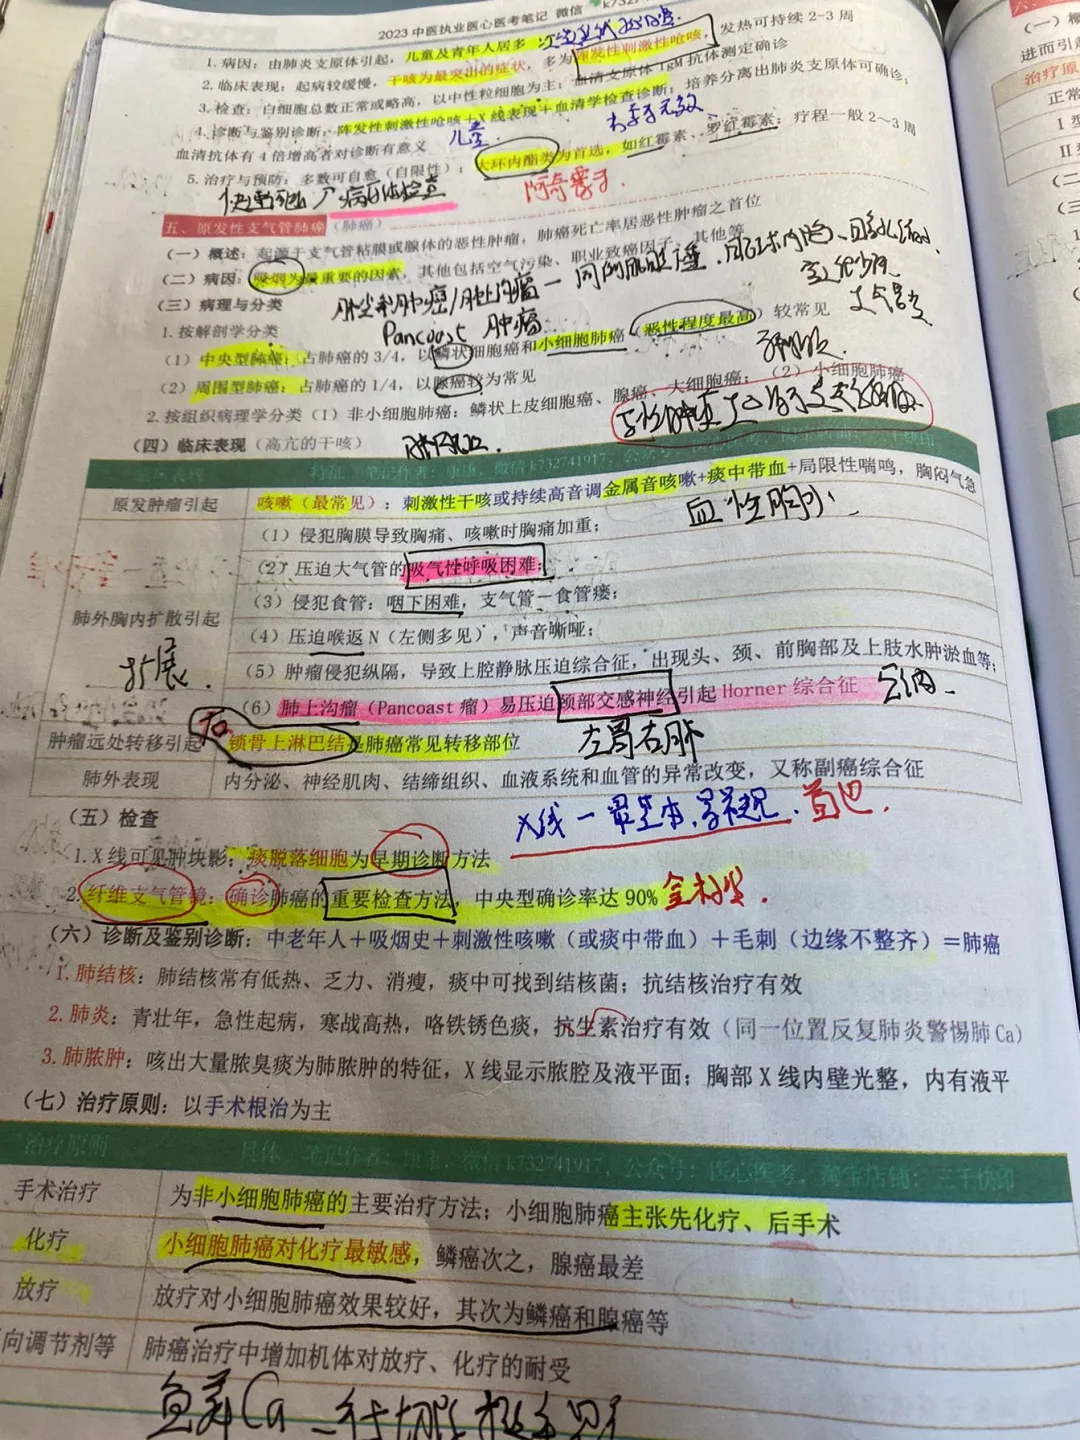 2023 中医执业医心医考笔记 微信 k732
1. 病因：由肺炎支原体引起，儿童及青年人居多
2. 临床表现：起病较缓慢，干咳为最突出的症状，多为阵发性刺激性呛咳，发热可持续 2-3 周
3. 检查：白细胞总数正常或略高，以中性粒细胞为主；血清支原体 IgM 抗体测定确诊
4. 诊断与鉴别诊断：阵发性刺激性呛咳＋X 线表现＋血清学检查诊断；培养分离出肺炎支原体可确诊；
血清抗体有 4 倍增高者对诊断有意义
儿童
青霉素无效
5. 治疗与预防：多数可自愈（自限性）；大环内酯类为首选，如红霉素、罗红霉素；疗程一般 2～3 周
病原体检查
阿奇霉素
五、原发性支气管肺癌（肺癌）
（一）概述：起源于支气管粘膜或腺体的恶性肿瘤，肺癌死亡率居恶性肿瘤之首位
（二）病因：吸烟为最重要的因素，其他包括空气污染、职业致癌因子、其他等
（三）病理与分类
肺尖部肿瘤/肺上沟瘤
Pancoast 肿瘤
1. 按解剖学分类
（1）中央型肺癌：占肺癌的 3/4，以鳞状细胞癌和小细胞肺癌（恶性程度最高）较常见
（2）周围型肺癌：占肺癌的 1/4，以腺癌较为常见
2. 按组织病理学分类（1）非小细胞肺癌：鳞状上皮细胞癌、腺癌、大细胞癌；（2）小细胞肺癌
（四）临床表现（高亢的干咳）
特征 笔记作者：康康，微信 k732741917，公众号
原发肿瘤引起 咳嗽（最常见）：刺激性干咳或持续高音调金属音咳嗽+痰中带血+局限性喘鸣，胸闷气急
血性胸水
肺外胸内扩散引起
扩展
（1）侵犯胸膜导致胸痛、咳嗽时胸痛加重；
（2）压迫大气管的吸气性呼吸困难；
（3）侵犯食管：咽下困难，支气管－食管瘘；
（4）压迫喉返 N（左侧多见），声音嘶哑；
（5）肿瘤侵犯纵隔，导致上腔静脉压迫综合征，出现头、颈、前胸部及上肢水肿淤血等；
（6）肺上沟瘤（Pancoast 瘤）易压迫颈部交感神经引起 Horner 综合征
肿瘤远处转移引起 右 锁骨上淋巴结是肺癌常见转移部位
左胃右肺
肺外表现 内分泌、神经肌肉、结缔组织、血液系统和血管的异常改变，又称副癌综合征
（五）检查
X线一最基本、
1. X 线可见肿块影；痰脱落细胞为早期诊断方法
2. 纤维支气管镜：确诊肺癌的重要检查方法，中央型确诊率达 90%
金标准.
（六）诊断及鉴别诊断：中老年人＋吸烟史＋刺激性咳嗽（或痰中带血）＋毛刺（边缘不整齐）＝肺癌
1. 肺结核：肺结核常有低热、乏力、消瘦，痰中可找到结核菌；抗结核治疗有效
2. 肺炎：青壮年，急性起病，寒战高热，咯铁锈色痰，抗生素治疗有效（同一位置反复肺炎警惕肺 Ca）
3. 肺脓肿：咳出大量脓臭痰为肺脓肿的特征，X 线显示脓腔及液平面；胸部 X 线内壁光整，内有液平
（七）治疗原则：以手术根治为主
治疗原则 具体 笔记作者：康康，微信 k732741917，公众号：医心医考，淘宝店铺：三千快印
手术治疗 为非小细胞肺癌的主要治疗方法；小细胞肺癌主张先化疗、后手术
化疗 小细胞肺癌对化疗最敏感，鳞癌次之，腺癌最差
放疗 放疗对小细胞肺癌效果较好，其次为鳞癌和腺癌等
向调节剂等 肺癌治疗中增加机体对放疗、化疗的耐受